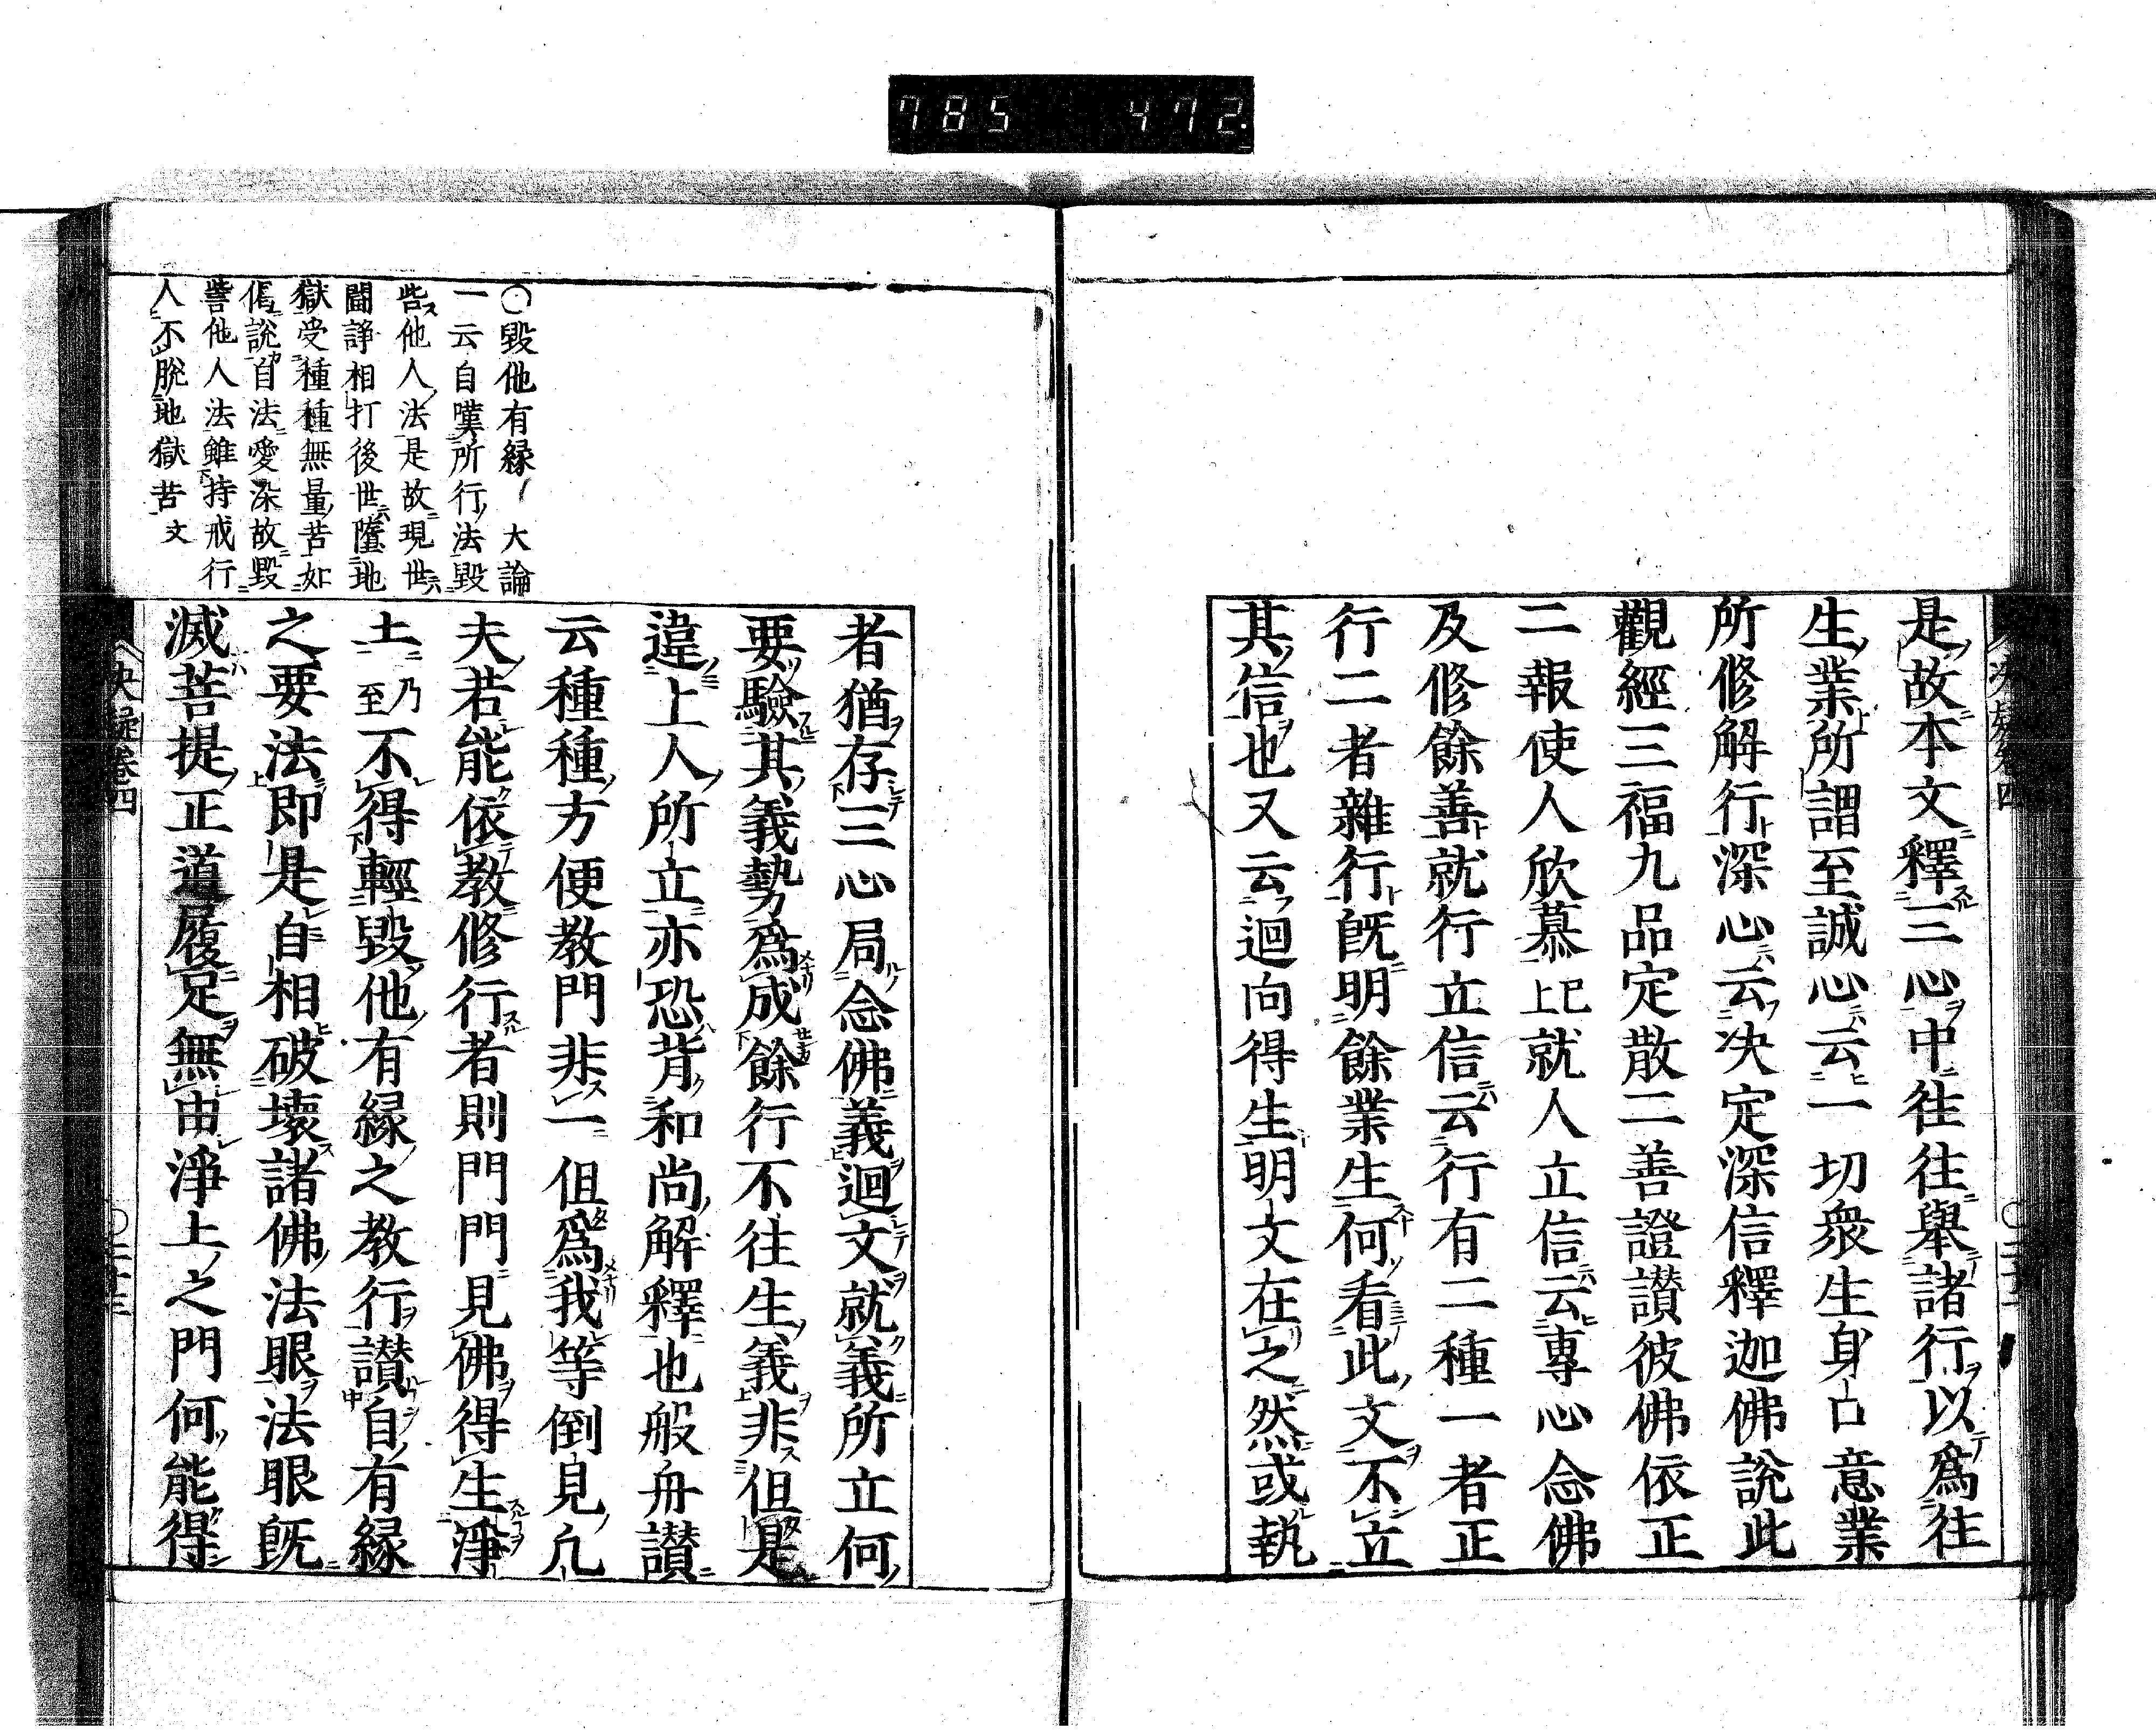 785 472
是故本文釋三心中往往舉諸行以爲往
生業所謂至誠心云一切衆生身口意業
所修解行深心云决定深信釋迦佛說此
觀經三福九品定散二善證讃彼佛依正
二報使人欣慕已上就人立信云專心念佛
及修餘善就行立信云行有二種一者正
行二者雜行旣明餘業生何看此文不立
其信也又云迴向得生明文在之然或執
○毀他有縁 大論
一云自嘆所行法毀
呰他人法是故現世
鬪諍相打後世墮地
獄受種種無量苦如
偈說自法愛染故毀
呰他人法雖持戒行
人不脫地獄苦文
者猶存三心局念佛義迴文就義所立何
要驗其義勢爲成餘行不往生義非但是
違上人所立亦恐背和尚解釋也般舟讃
云種種方便教門非一但爲我等倒見凡
夫若能依教修行者則門門見佛得生淨
土乃至不得輕毀他有縁之教行讃自有縁
之要法即是自相破壞諸佛法眼法眼旣
滅菩提正道履足無由淨土之門何能得
决疑卷四